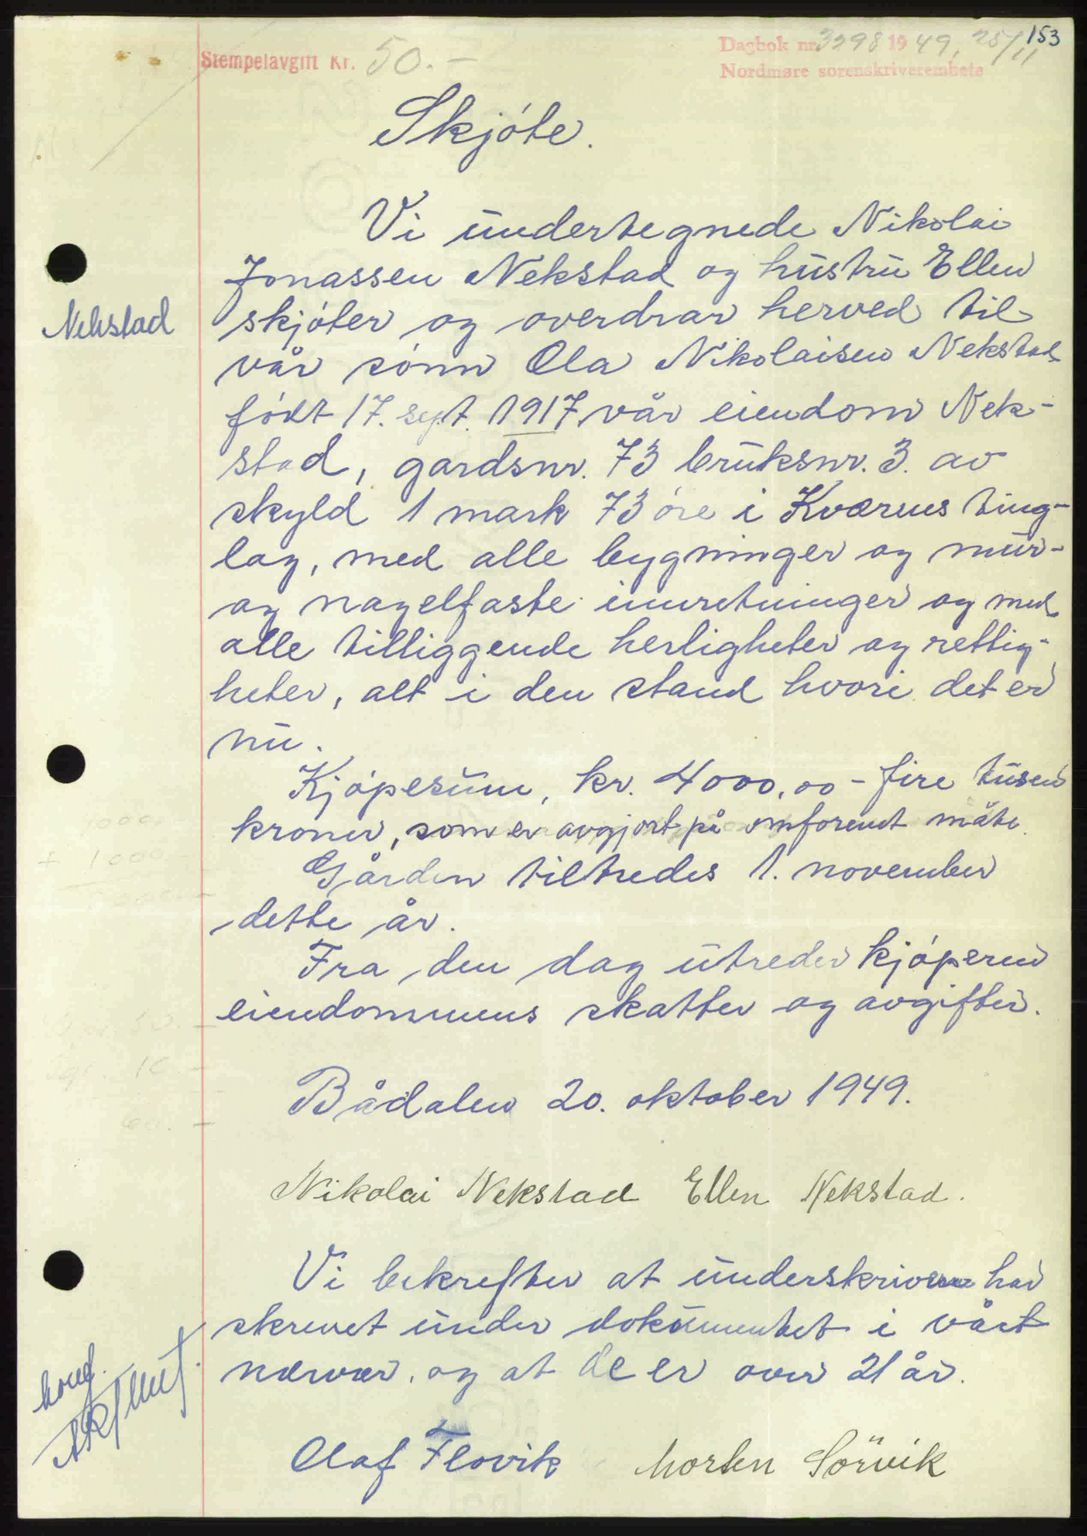 153
Stempelavgift Kr. 50.-
Dagbok nr. 3298 1949, 25/11
Nordmøre sorenskriverembete
Skjøte.
Vi undertegnede Nikolai
Jonassen Nekstad og hustru Ellen
Nekstad
skjøter og overdrar herved til
vår sønn Ola Nikolaisen Nekstad
født 17. sept. 1917 vår eiendom Nek-
stad, gardsnr. 73 bruksnr. 3. av
skyld 1 mark 73 øre i Kværnes ting-
lag, med alle bygninger og mur-
og nagelfaste innretninger og med
alle tilliggende herligheter og rettig-
heter, alt i den stand hvori det er
nu.
Kjøpesum, kr. 4000,00 - fire tusen
kroner, som er avgjort på omforenet måte.
Gården tiltredes 1. november
dette år.
Fra den dag utreder kjøperen
eiendommens skatter og avgifter.
Bådalen 20. oktober 1949.
Nikolai Nekstad Ellen Nekstad.
Vi bekrefter at underskriverne har
skrevet under dokumentet i vårt
nærvær, og at de er over 21 år.
Olaf Flovik Morten Sörvik